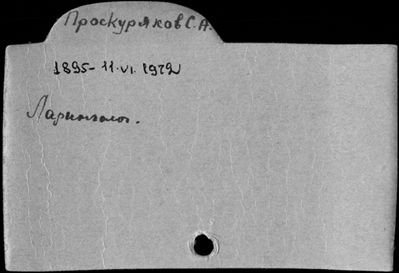 Проскуряков С. А.
1895 - 11.VI.1972
Ларинголог.